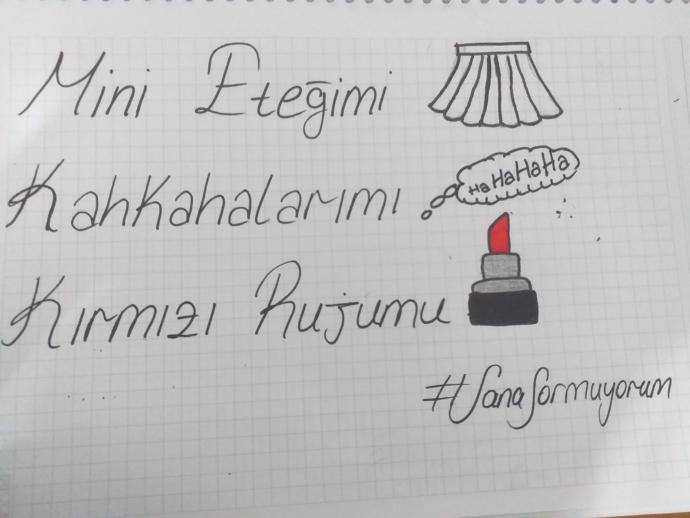 Mini Eteğimi
Kahkahalarımı
HaHaHaHa
Kırmızı Rujumu
#SanaSormuyorum